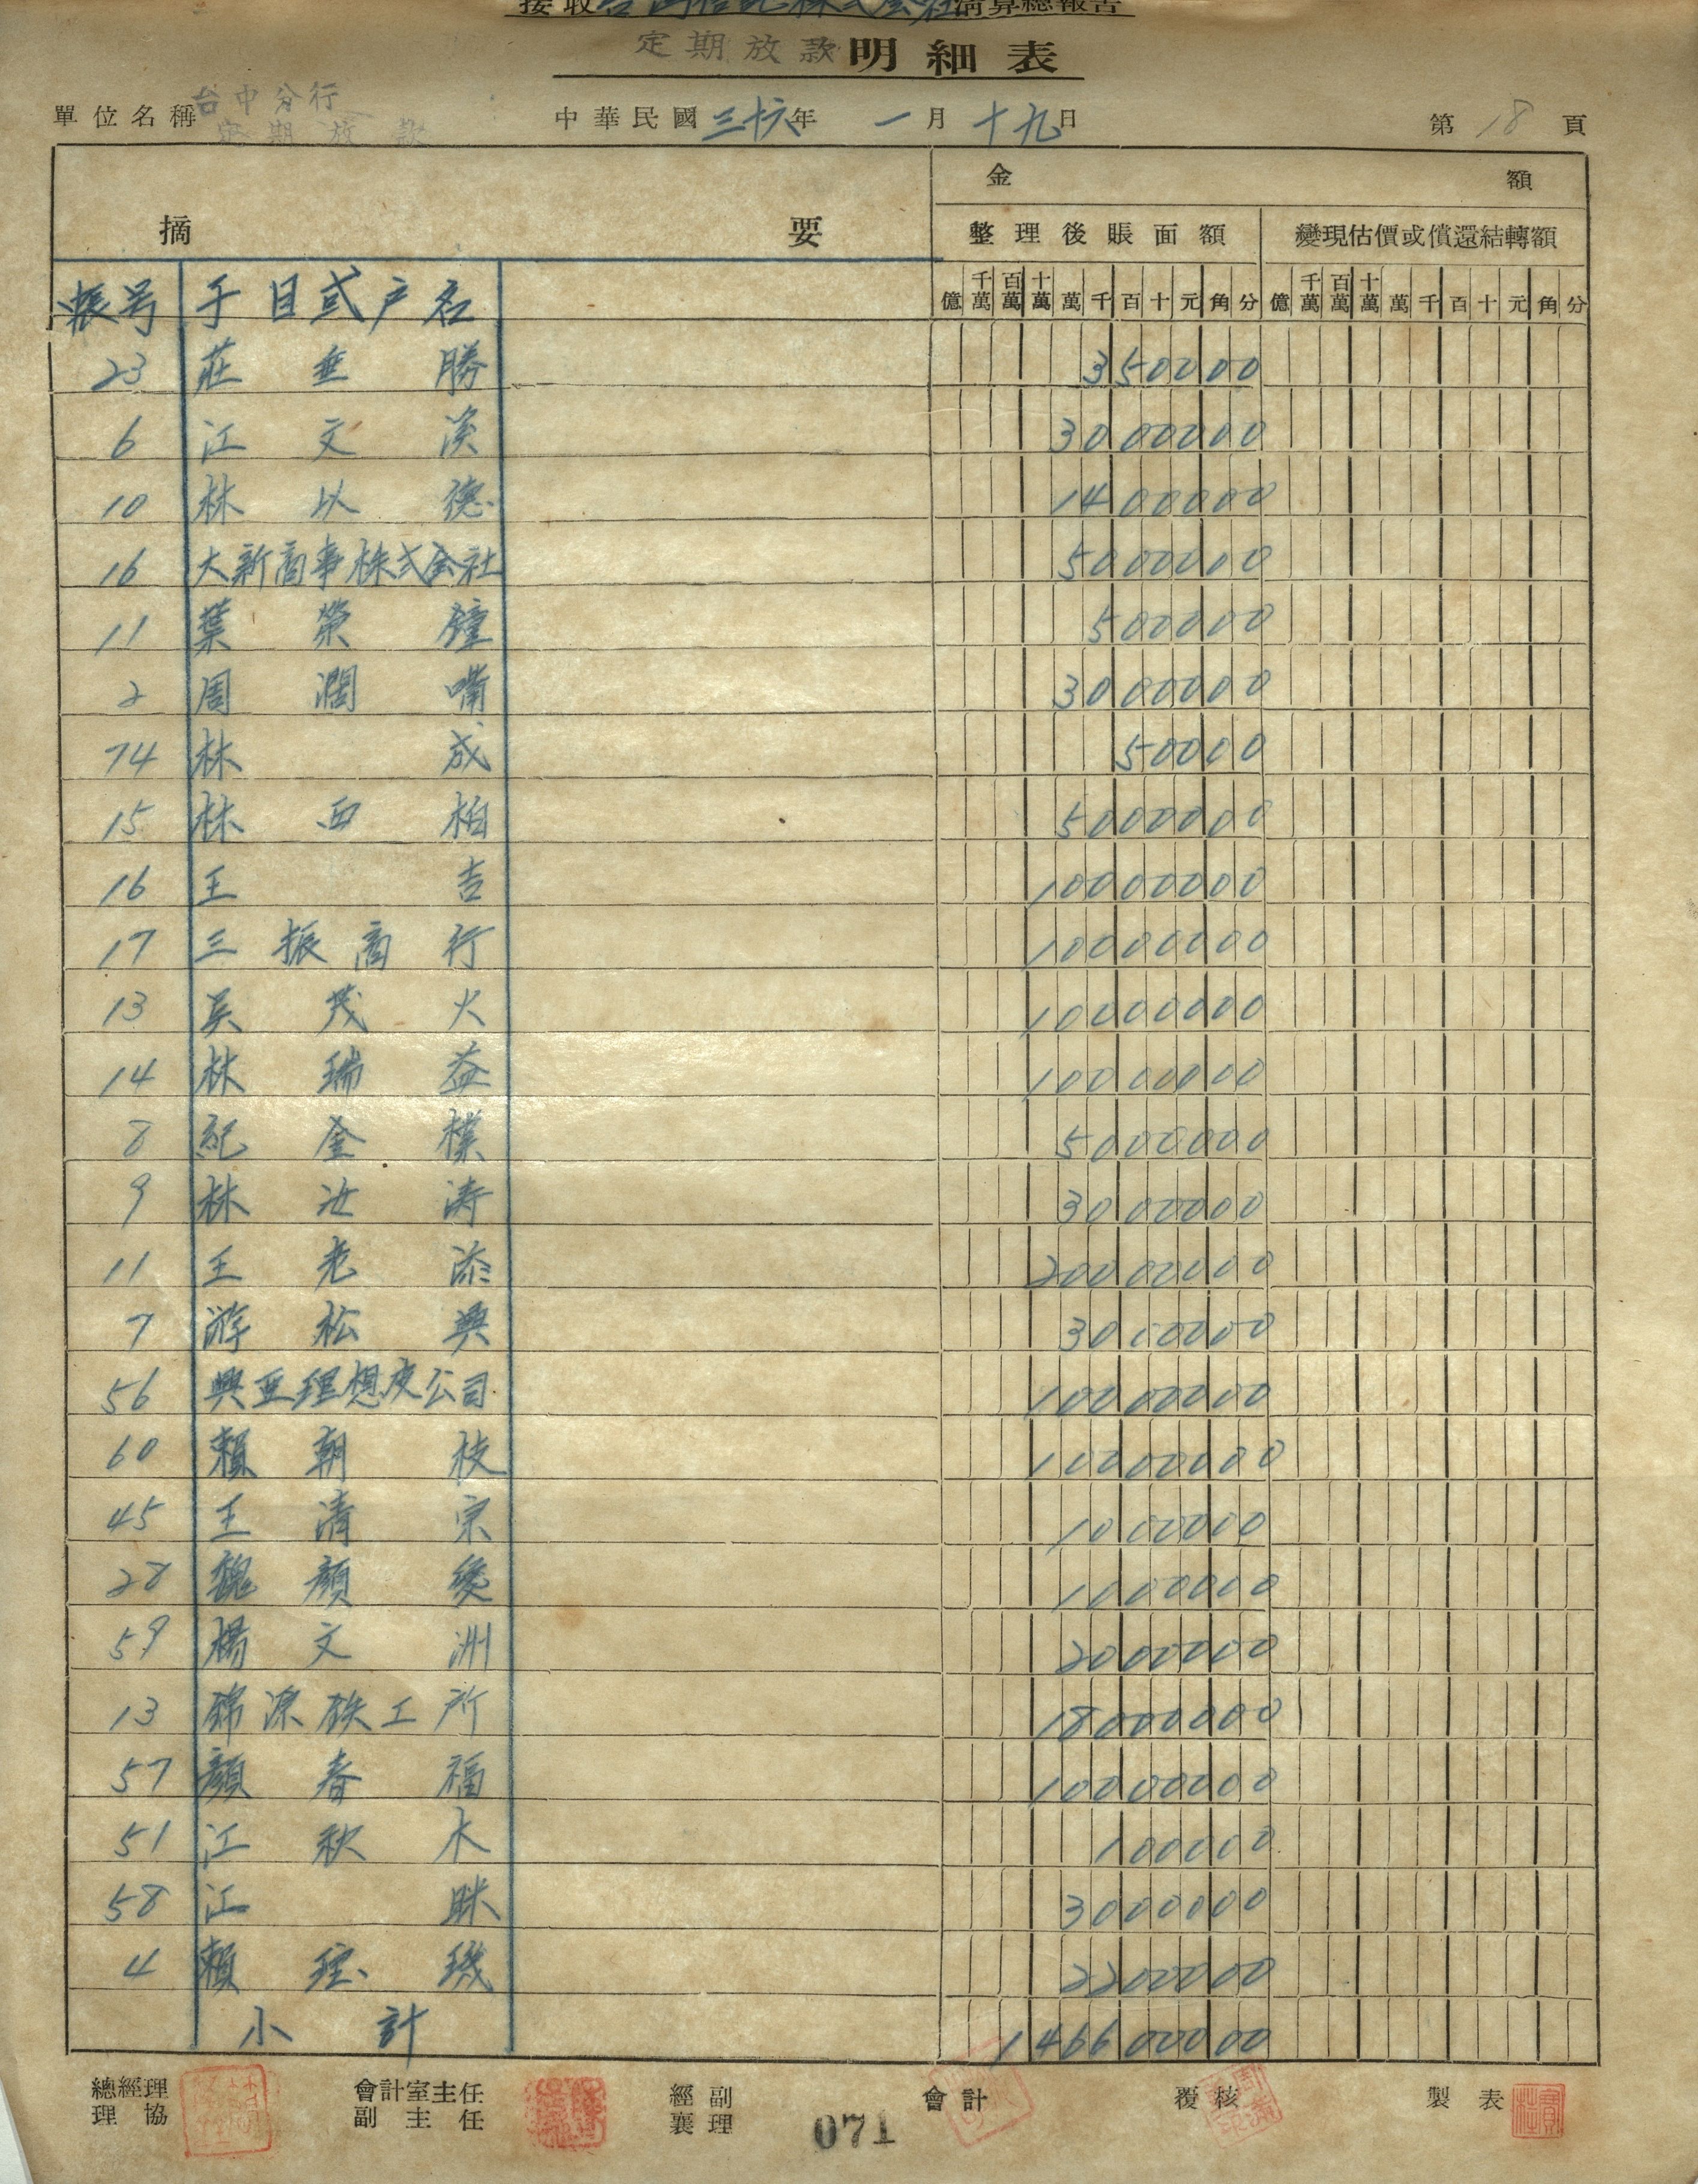 接收台湾信託株式会社清算總報告
定期放款明細表
單位名稱 台中分行 定期放款 中華民國三十六年 一月 十九日 第 18 頁
摘 要 金 額
整理後賬面額 變現估價或償還結轉額
賬号 子目或户名 億 千萬 百萬 十萬 萬 千 百 十 元 角 分 億 千萬 百萬 十萬 萬 千 百 十 元 角 分
23 莊垂勝 350000
6 江文溪 3000000
10 林以德 1400000
16 大新商事株式会社 5000000
11 葉榮鐘 500000
2 周濶嘴 3000000
74 林成 50000
15 林西柏 5000000
16 王吉 10000000
17 三振商行 10000000
13 吳茂火 10000000
14 林瑞益 10000000
8 紀金樸 5000000
9 林汝涛 3000000
11 王老添 20000000
7 游松興 3000000
56 興亜理想皮公司 10000000
60 賴朝枝 10000000
45 王清宗 1000000
28 魏顏愛 1000000
59 楊文洲 2000000
13 錦源鉄工所 18000000
57 顏春福 10000000
51 江秋木 100000
58 江眯 3000000
4 賴璣 2200000
小計 146600000
總經理 協理 會計室主任 副主任 經副襄理 會計 覆核 製表
071